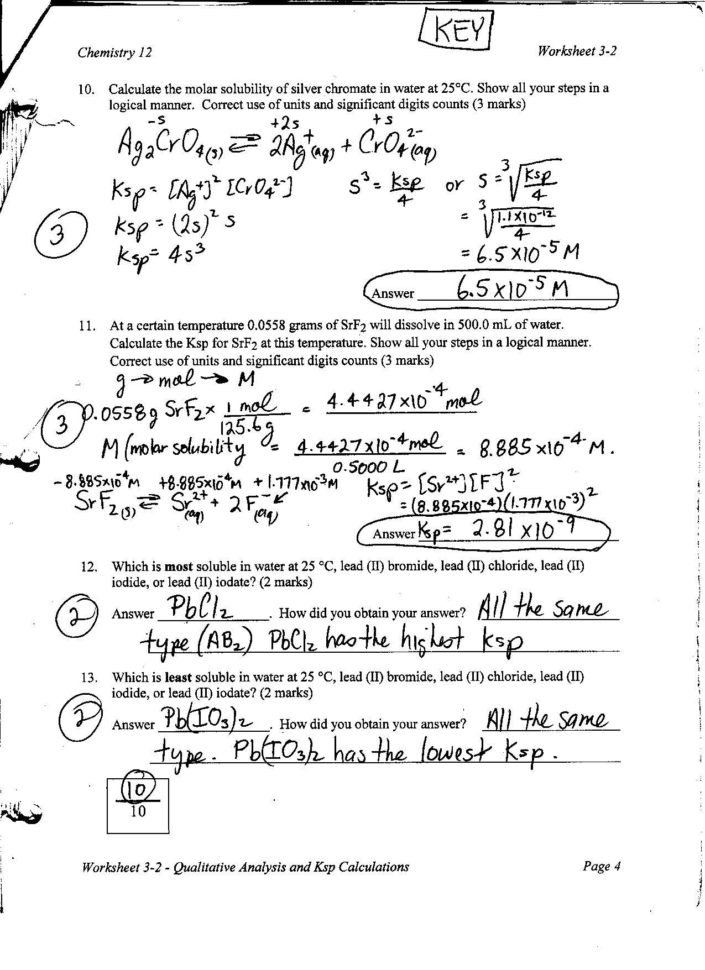 KEY
Chemistry 12 Worksheet 3-2
10. Calculate the molar solubility of silver chromate in water at 25°C. Show all your steps in a
logical manner. Correct use of units and significant digits counts (3 marks)
-s +2s +s
Ag₂CrO₄(s) ⇌ 2Ag⁺(aq) + CrO₄²⁻(aq)
Ksp = [Ag⁺]² [CrO₄²⁻] s³ = Ksp/4 or s = ³√(Ksp/4)
3 Ksp = (2s)² s = ³√(1.1x10⁻¹²/4)
Ksp = 4s³ = 6.5x10⁻⁵ M
Answer 6.5x10⁻⁵ M
11. At a certain temperature 0.0558 grams of SrF₂ will dissolve in 500.0 mL of water.
Calculate the Ksp for SrF₂ at this temperature. Show all your steps in a logical manner.
Correct use of units and significant digits counts (3 marks)
g → mol → M
3 0.0558g SrF₂ x 1 mol/125.6g = 4.4427x10⁻⁴ mol
M (molar solubility = 4.4427x10⁻⁴ mol/0.5000 L = 8.885x10⁻⁴ M.
-8.885x10⁻⁴M +8.885x10⁻⁴M +1.777x10⁻³M Ksp = [Sr²⁺][F⁻]²
SrF₂(s) ⇌ Sr²⁺(aq) + 2F⁻(aq) = (8.885x10⁻⁴)(1.777x10⁻³)²
Answer Ksp = 2.81 x10⁻⁹
12. Which is most soluble in water at 25 °C, lead (II) bromide, lead (II) chloride, lead (II)
iodide, or lead (II) iodate? (2 marks)
2 Answer PbCl₂. How did you obtain your answer? All the same
type (AB₂) PbCl₂ has the highest Ksp
13. Which is least soluble in water at 25 °C, lead (II) bromide, lead (II) chloride, lead (II)
iodide, or lead (II) iodate? (2 marks)
2 Answer Pb(IO₃)₂. How did you obtain your answer? All the same
type. Pb(IO₃)₂ has the lowest Ksp.
10
10
Worksheet 3-2 - Qualitative Analysis and Ksp Calculations Page 4